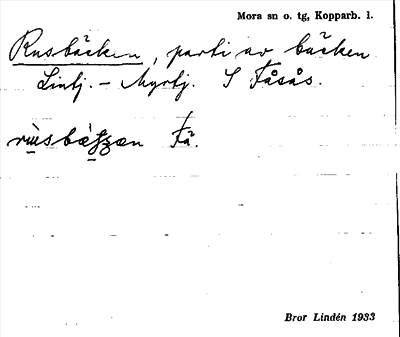 Mora sn o. tg, Kopparb. l.
Rusbäcken, parti av bäcken
Limtj. – Myrtj. S Fåsås.
Få.
Bror Lindén 1933